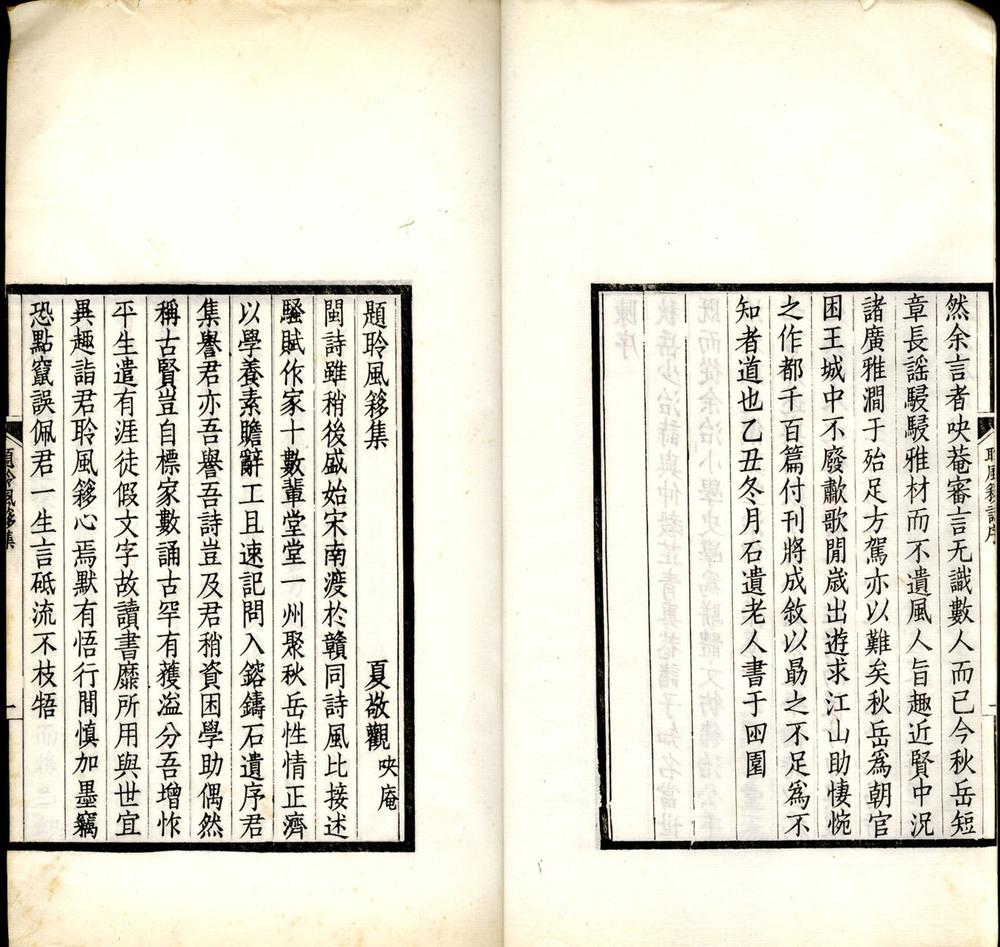 然余言者吷菴審言无識數人而已今秋岳短
章長謡駸駸雅材而不遺風人旨趣近賢中況
諸廣雅澗于殆足方駕亦以難矣秋岳爲朝官
困王城中不廢歗歌閒歲出遊求江山助悽惋
之作都千百篇付刊將成敘以勗之不足爲不
知者道也乙丑冬月石遺老人書于匹園
聆風簃詩序
題聆風簃集
夏敬觀 吷庵
閩詩雖稍後盛始宋南渡於贛同詩風比接述
騷賦作家十數輩堂堂一州聚秋岳性情正濟
以學養素贍辭工且速記問入鎔鑄石遺序君
集譽君亦吾譽吾詩豈及君稍資困學助偶然
稱古賢豈自標家數誦古罕有獲溢分吾增怍
平生遣有涯徒假文字故讀書靡所用與世宜
異趣詣君聆風簃心焉默有悟行間慎加墨竊
恐點竄誤佩君一生言砥流不枝牾
題聆風簃集
一